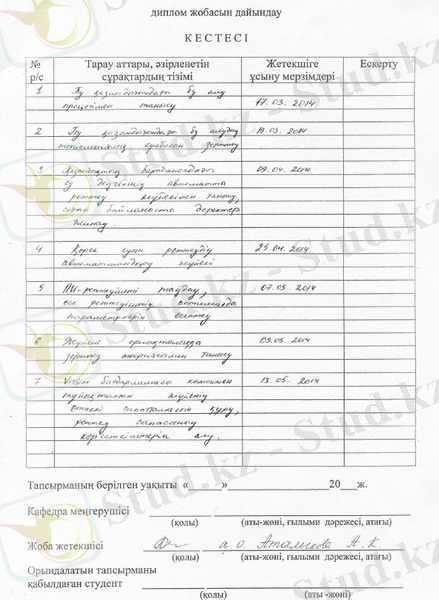 диплом жобасын дайындау
КЕСТЕСІ
№
р/с
Тарау аттары, әзірленетін
сұрақтардың тізімі
Жетекшіге
ұсыну мерзімдері
Ескерту
1 Бу қазандықтағы бу алу
процесімен танысу 17.03.2014
2 Бу қазандықтағы бу алудың
зерттеу
3
су деңгейінің автоматты
реттеу жүйесімен танысу,
байланысты деректер
жинау
09.04.2014
4 Қорек суын реттеудің
автоматтандыру жүйесі
25.04.2014
5 ПИ-реттеуішті таңдау,
осы реттеуіштің
параметрлерін есептеу
07.05.2014
6 Жүйені орнықтылыққа
зерттеу танысу
09.05.2014
7 Vissim бағдарламасы көмегімен
тұйықталған жүйенің
құру,
реттеу сапасының
көрсеткіштерін алу.
13.05.2014
Тапсырманың берілген уақыты «____»____________20___ж.
Кафедра меңгерушісі
(қолы) (аты-жөні, ғылыми дәрежесі, атағы)
Жоба жетекшісі а.о.
(қолы) (аты-жөні, ғылыми дәрежесі, атағы)
Орындалатын тапсырманы
қабылдаған студент
(қолы) (аты -жөні)
Stud.kz - Stud.kz